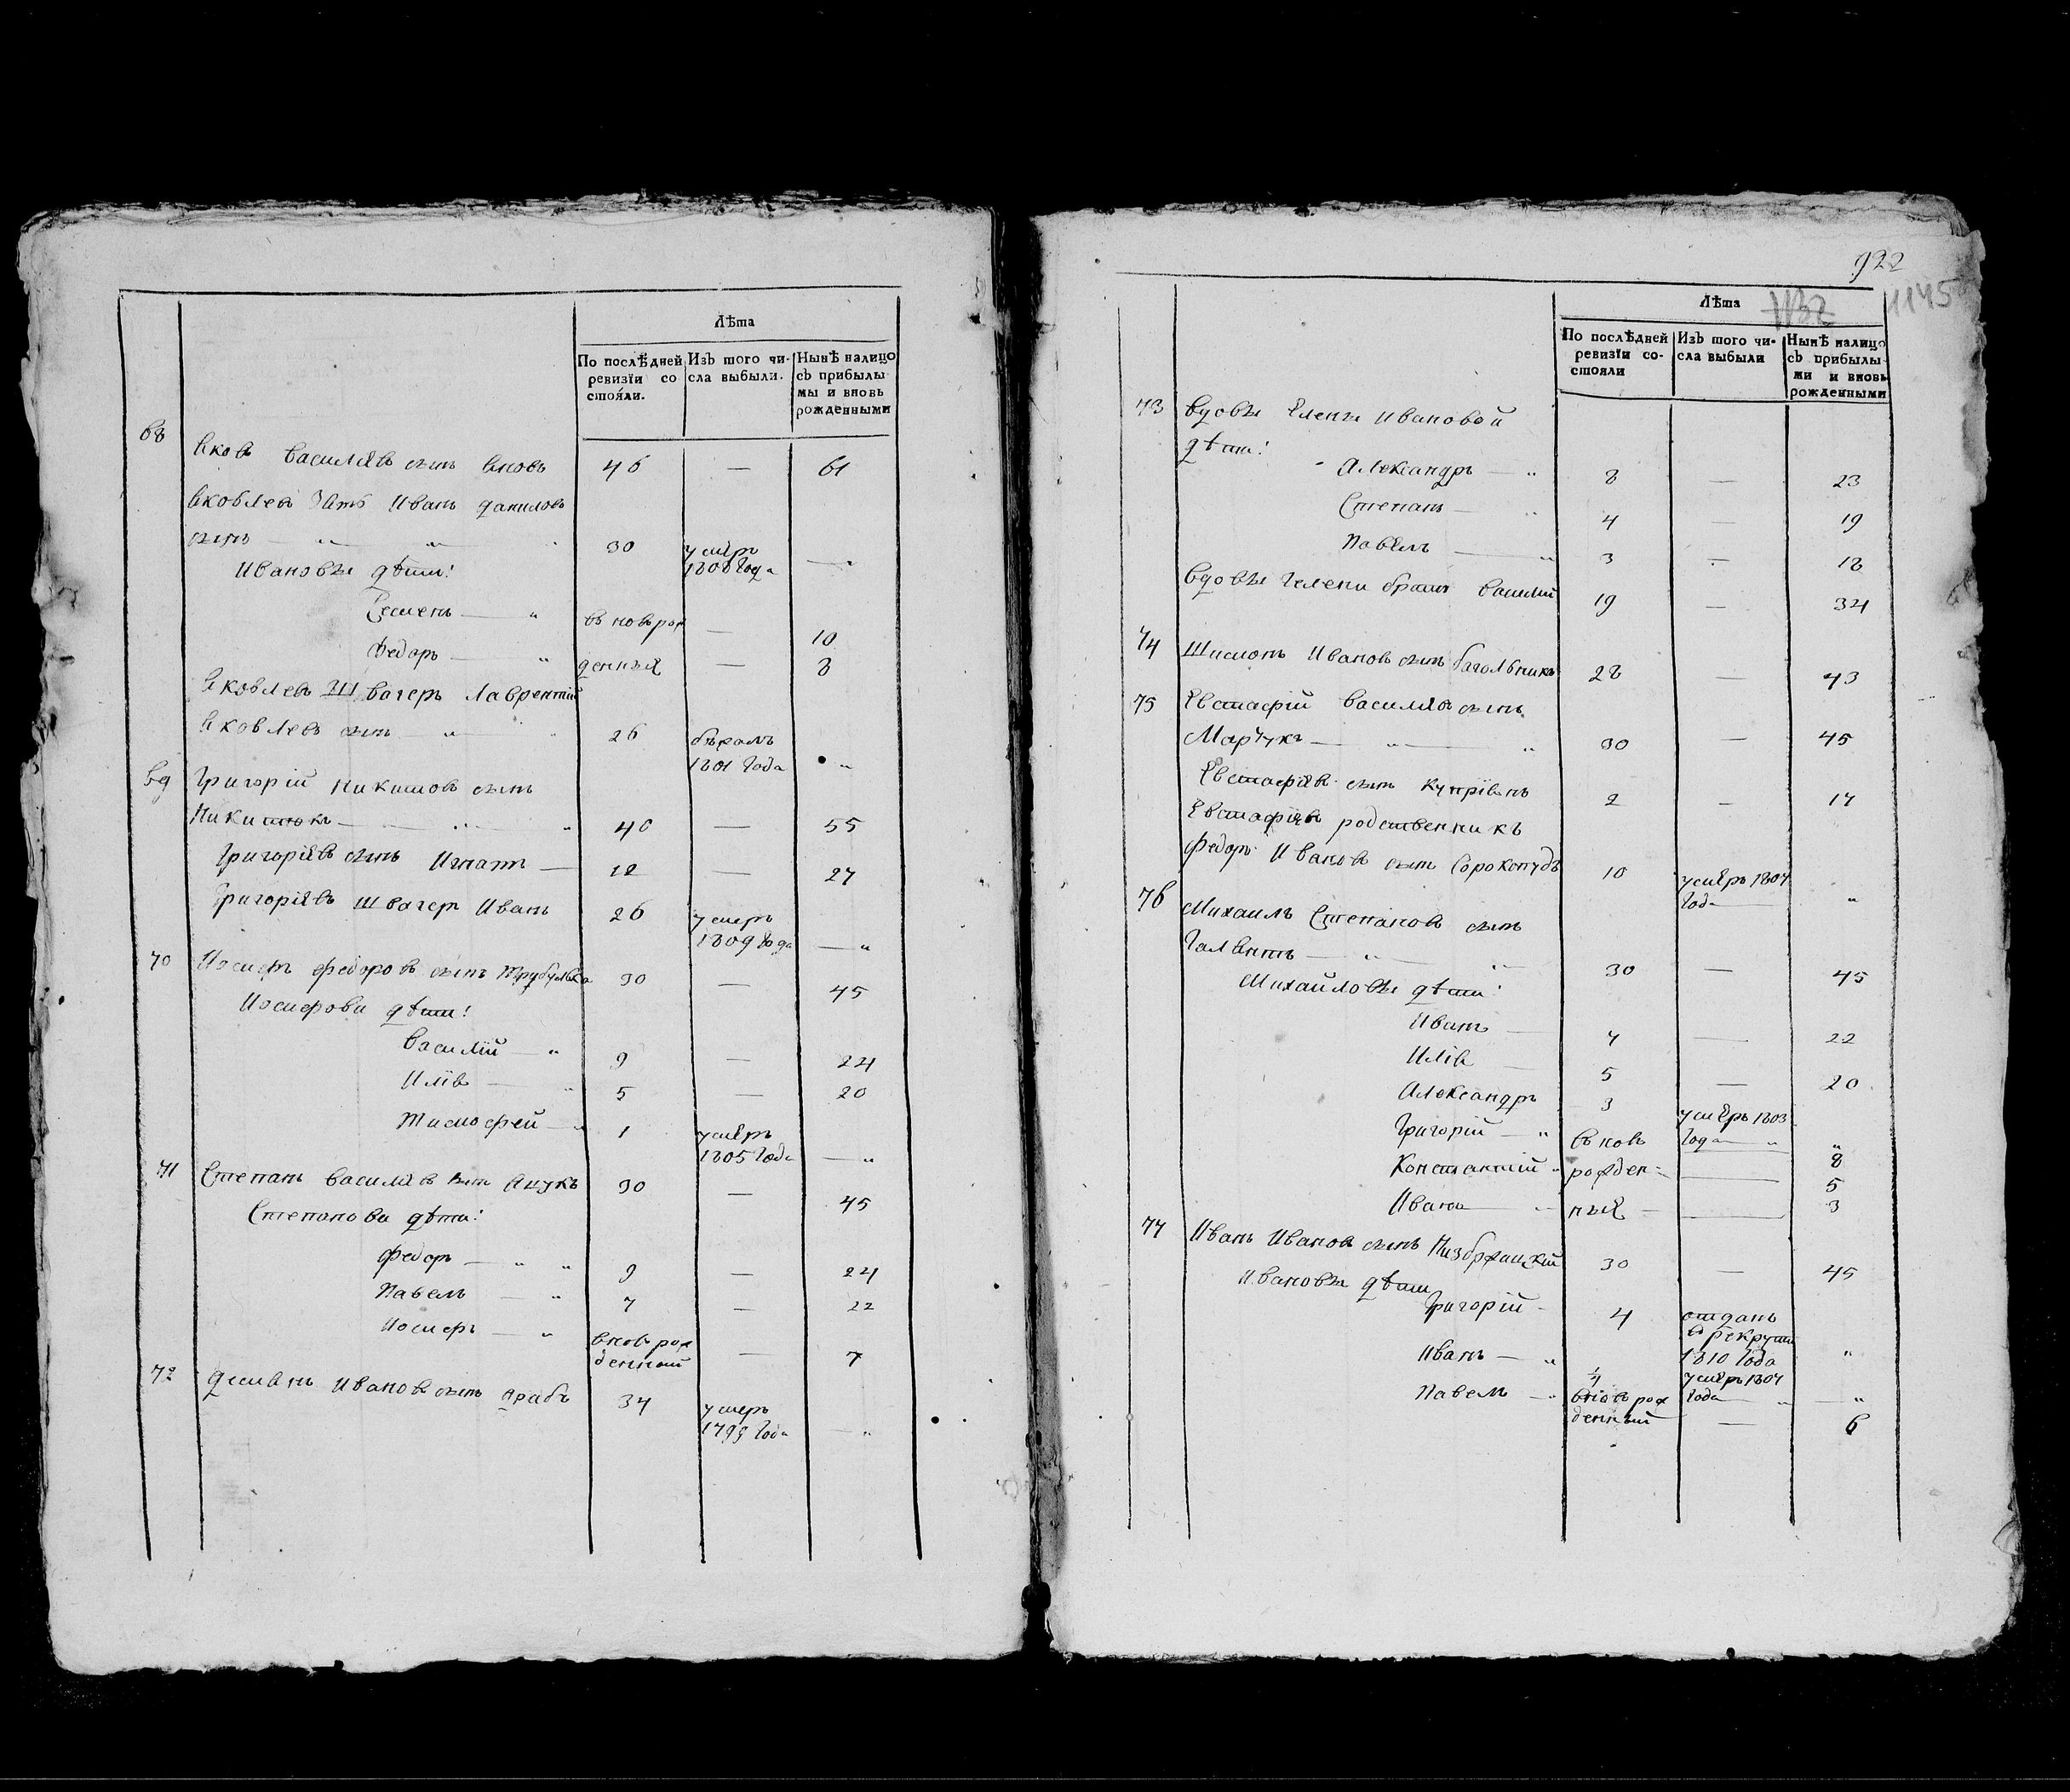 Лѣта
По послѣдней ревизїи со стояли.
Изъ того чи- сла выбыли.
Нынѣ налицо съ прибылы мы и вновь рожденными
68
Яковъ Василїевъ сынъ Яковъ 46 — 61
Яковлевъ Зять Иванъ даниловъ
сынъ — 30 умеръ 1808 Года —
Ивановы дѣти:
Семенъ — вновьрож — 10
Федоръ — денныя — 8
Яковлевъ Швагеръ Лаврентїй
Яковлевъ сынъ — 26 бѣжалъ 1801 Года „
69 Григорїй Никитовъ сынъ
Никитюкъ — 40 — 55
Григорїевъ сынъ Игнатъ — 12 — 27
Григорїевъ швагеръ Иванъ 26 умеръ 1809 Года — „
70 Иосифъ Федоровъ сынъ Трубулька 30 — 45
Иосифови дѣти:
Василїй — „ 9 — 24
Илїя — 5 — 20
Тимофей — 1 умеръ 1805 Года — „
71 Степанъ Василїевъ сынъ Яцукъ 30 — 45
Степанови дѣти:
Федоръ — „ „ 9 — 24
Павелъ — „ 7 — 22
Иосифъ — „ вновьрож денный — 7
72 Демянъ Ивановъ сынъ Арабъ 34 умеръ 1799 Года — „
922
1132 1145
Лѣта
По послѣдней ревизїи со- стояли
Изъ того чи- сла выбыли
Нынѣ налицо съ прибылы- ми и вновь рожденными
73 Вдовы Елены Ивановой
дѣти:
Александръ — „ 8 — 23
Степанъ — 4 — 19
Павелъ — „ 3 — 18
Вдовы Гелени братъ Василий 19 — 34
74 Шимонъ Ивановъ сынъ Багольникъ 28 — 43
75 Евстафїй Василїевъ сынъ
Марчукъ — „ — „ 30 — 45
Евстафїевъ сынъ Купрїянъ 2 — 17
Евстафїевъ родственникъ
Федоръ Ивановъ сынъ Сорокопудъ 10 умеръ 1804 Года — „
76 Михаилъ Степановъ сынъ
Галянтъ — „ — „ 30 — 45
Михайловы дѣти:
Иванъ — 7 — 22
Илїя — 5 — 20
Александръ 3 умеръ 1803 Года — „ „
Григорїй — „ вновь — 8
Константїй „ рожден- — 5
Иванъ — ныя — 3
77 Иванъ Ивановъ сынъ Низбржицкїй 30 — 45
Ивановы дѣти
Григорїй — 4 отданъ въ рекруты 1810 Года „
Иванъ — „ 4 умеръ 1804 Года — „ — „
Павелъ — „ вновьрож денный — 6